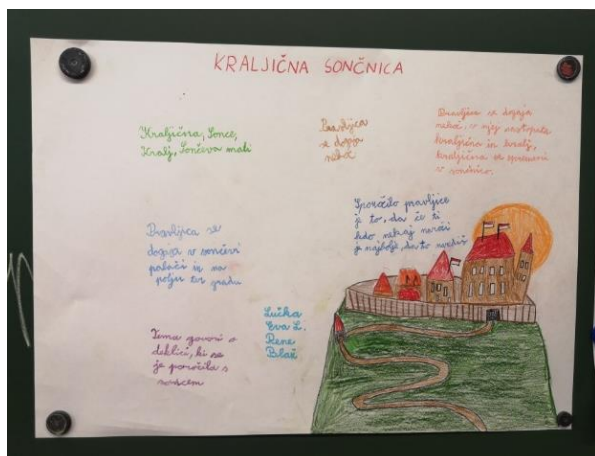 KRALJIČNA SONČNICA
Kraljična, Sonce,
Kralj, Sončeva mati
Pravljica
se dogaja
nekoč
Pravljica se dogaja
nekoč, v njej nastopata
kraljična in kralj,
kraljična se spremeni
v sončnico.
Pravljica se
dogaja v sončevi
palači in na
polju ter gradu
Sporočilo pravljice
je to, da če ti
kdo nekaj naroči
je najbolje, da to narediš
Tema govori o
deklici, ki se
je poročila s
soncem
Lučka
Eva L.
Rene
Blaž